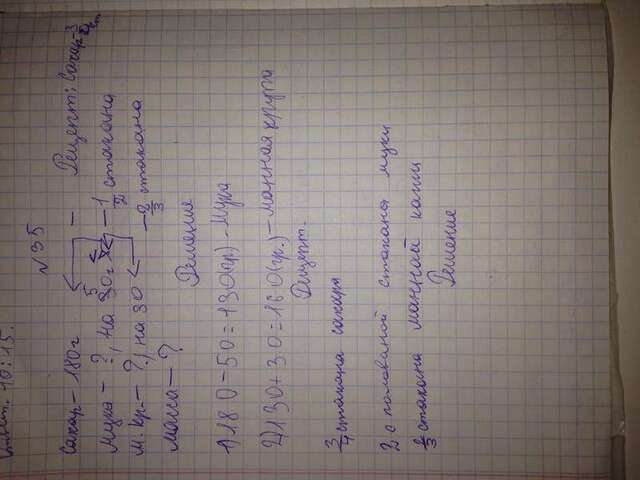 Ответ. 10:15.
№35
Сахар – 180г – Рецепт: Сахар 3/4 ст
Мука – ?, на 50г – 1/2 стакана
М. Кр. – ?, на 30 – 2/3 стакана
Масса – ?
Решение
1) 180 – 50 = 130 (гр) – Мука
2) 130 + 30 = 160 (гр.) – манная крупа
Рецепт.
3/4 стакана сахара
2 с половиной стакана муки
2/3 стакана манной каши
Решение